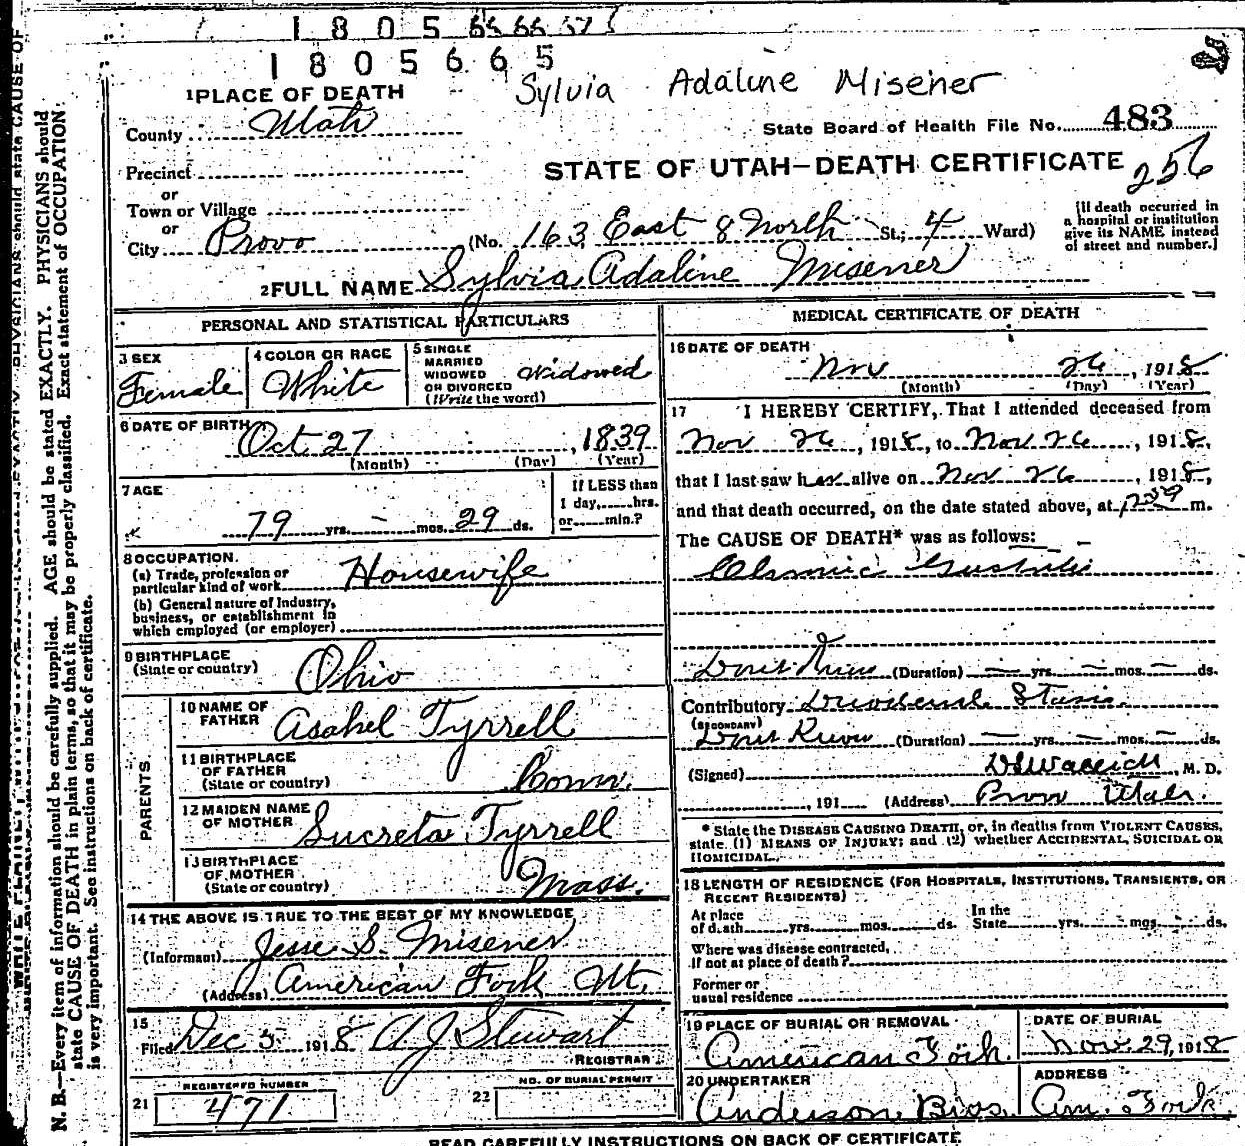 1805665
Sylvia Adaline Misener
1 PLACE OF DEATH
County Utah
State Board of Health File No. 483
STATE OF UTAH—DEATH CERTIFICATE
256
Precinct
or
Town or Village
or
City Provo (No. 163 East 8 North St.; 4 Ward)
[If death occurred in
a hospital or institution
give its NAME instead
of street and number.]
2 FULL NAME Sylvia Adaline Misener
PERSONAL AND STATISTICAL PARTICULARS
3 SEX
Female
4 COLOR OR RACE
White
5 SINGLE
MARRIED
WIDOWED
OR DIVORCED
(Write the word)
Widowed
6 DATE OF BIRTH
Oct 27, 1839
(Month) (Day) (Year)
7 AGE
79 yrs. - mos. 29 ds.
If LESS than
1 day, hrs.
or min.?
8 OCCUPATION
(a) Trade, profession or
particular kind of work Housewife
(b) General nature of Industry,
business, or establishment in
which employed (or employer)
9 BIRTHPLACE
(State or country) Ohio
PARENTS
10 NAME OF
FATHER Asahel Tyrrell
11 BIRTHPLACE
OF FATHER
(State or country) Conn.
12 MAIDEN NAME
OF MOTHER Sucreta Tyrrell
13 BIRTHPLACE
OF MOTHER
(State or country) Mass.
14 THE ABOVE IS TRUE TO THE BEST OF MY KNOWLEDGE
(Informant) Jesse S. Misener
(Address) American Fork Ut.
15
Filed Dec 5 1918 A J Stewart
REGISTRAR
REGISTERED NUMBER
21 471
NO. OF BURIAL PERMIT
22
MEDICAL CERTIFICATE OF DEATH
16 DATE OF DEATH
Nov 26, 1918
(Month) (Day) (Year)
17 I HEREBY CERTIFY, That I attended deceased from
Nov 26, 1918, to Nov 26, 1918,
that I last saw her alive on Nov 26, 1918,
and that death occurred, on the date stated above, at m.
The CAUSE OF DEATH* was as follows:
Chronic Gastritis
Dont Know (Duration) yrs. mos. ds.
Contributory Duodenal Stasis
(SECONDARY)
Dont Know (Duration) yrs. mos. ds.
(Signed) M. D.
, 191 (Address) Provo Utah.
* State the DISEASE CAUSING DEATH, or, in deaths from VIOLENT CAUSES,
state (1) MEANS OF INJURY; and (2) whether ACCIDENTAL, SUICIDAL OR
HOMICIDAL.
18 LENGTH OF RESIDENCE (FOR HOSPITALS, INSTITUTIONS, TRANSIENTS, OR
RECENT RESIDENTS)
At place
of death yrs. mos. ds.
In the
State yrs. mos. ds.
Where was disease contracted,
If not at place of death?
Former or
usual residence
19 PLACE OF BURIAL OR REMOVAL
American Fork
DATE OF BURIAL
Nov. 29, 1918
20 UNDERTAKER
Anderson Bros.
ADDRESS
Am. Fork
READ CAREFULLY INSTRUCTIONS ON BACK OF CERTIFICATE
N. B.—Every item of information should be carefully supplied. AGE should be stated EXACTLY. PHYSICIANS should
state CAUSE OF DEATH in plain terms, so that it may be properly classified. Exact statement of OCCUPATION
is very important. See instructions on back of certificate.